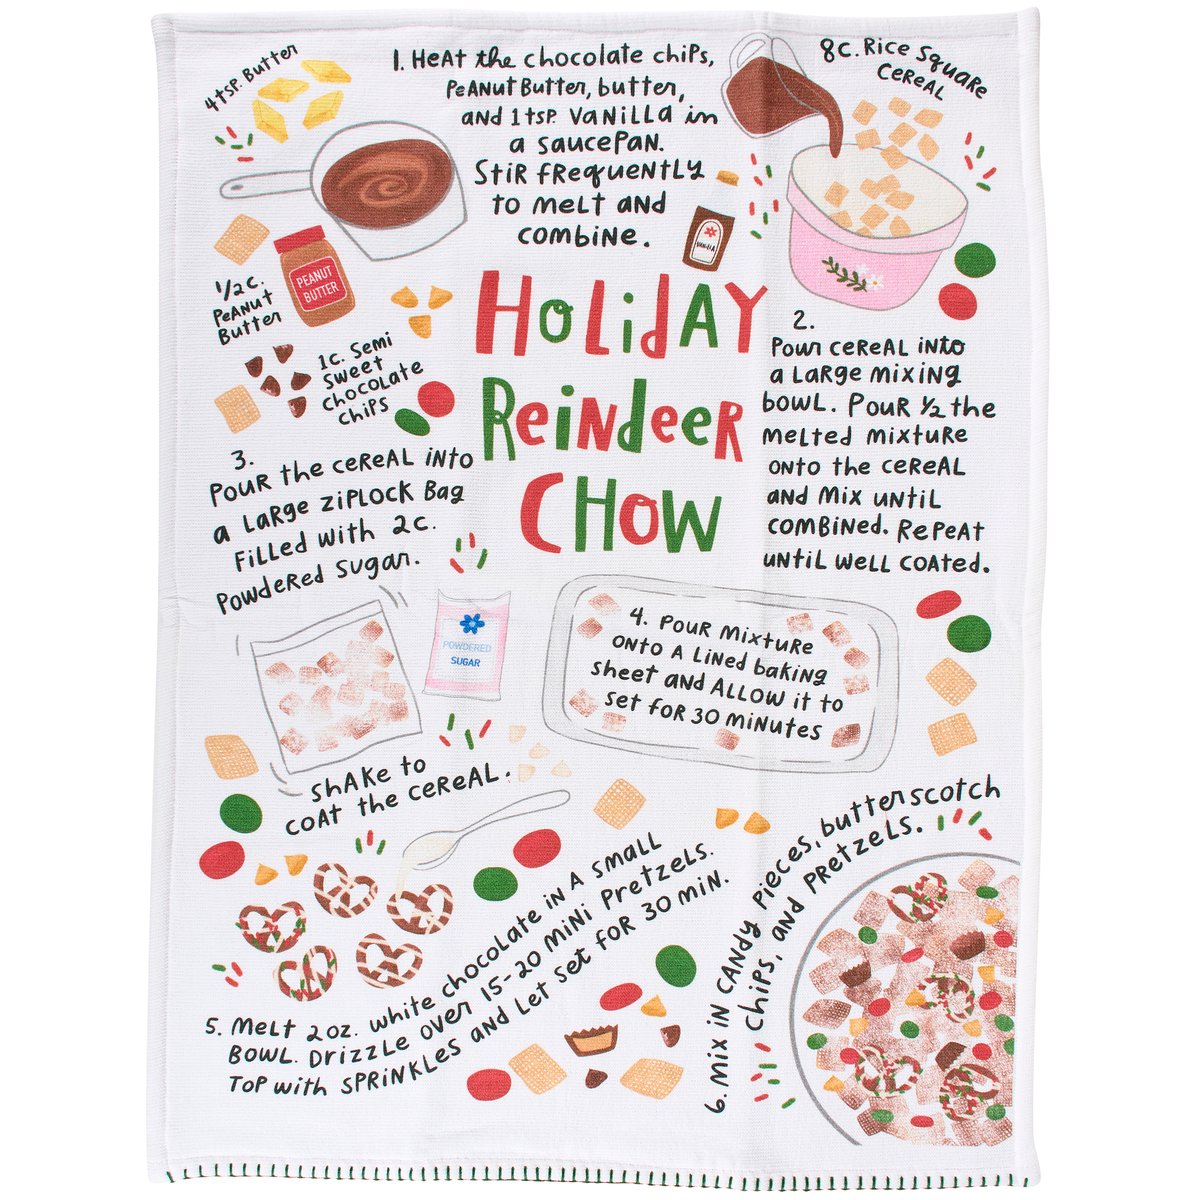 4 tsp. Butter
1. Heat the chocolate chips,
peanut butter, butter,
and 1 tsp. vanilla in
a saucepan.
Stir frequently
to melt and
combine.
8c. Rice Square
Cereal
VANILLA
PEANUT
BUTTER
1/2 c.
Peanut
Butter
1c. Semi
Sweet
Chocolate
Chips
Holiday
Reindeer
Chow
2.
Pour cereal into
a large mixing
bowl. Pour 1/2 the
melted mixture
onto the cereal
and mix until
combined. Repeat
until well coated.
3.
Pour the cereal into
a large ziplock bag
filled with 2c.
powdered sugar.
POWDERED
SUGAR
Shake to
coat the cereal.
4. Pour mixture
onto a lined baking
sheet and allow it to
set for 30 minutes
5. Melt 2 oz. white chocolate in a small
bowl. Drizzle over 15-20 mini pretzels.
Top with sprinkles and let set for 30 min.
6. Mix in candy pieces, butterscotch
chips, and pretzels.